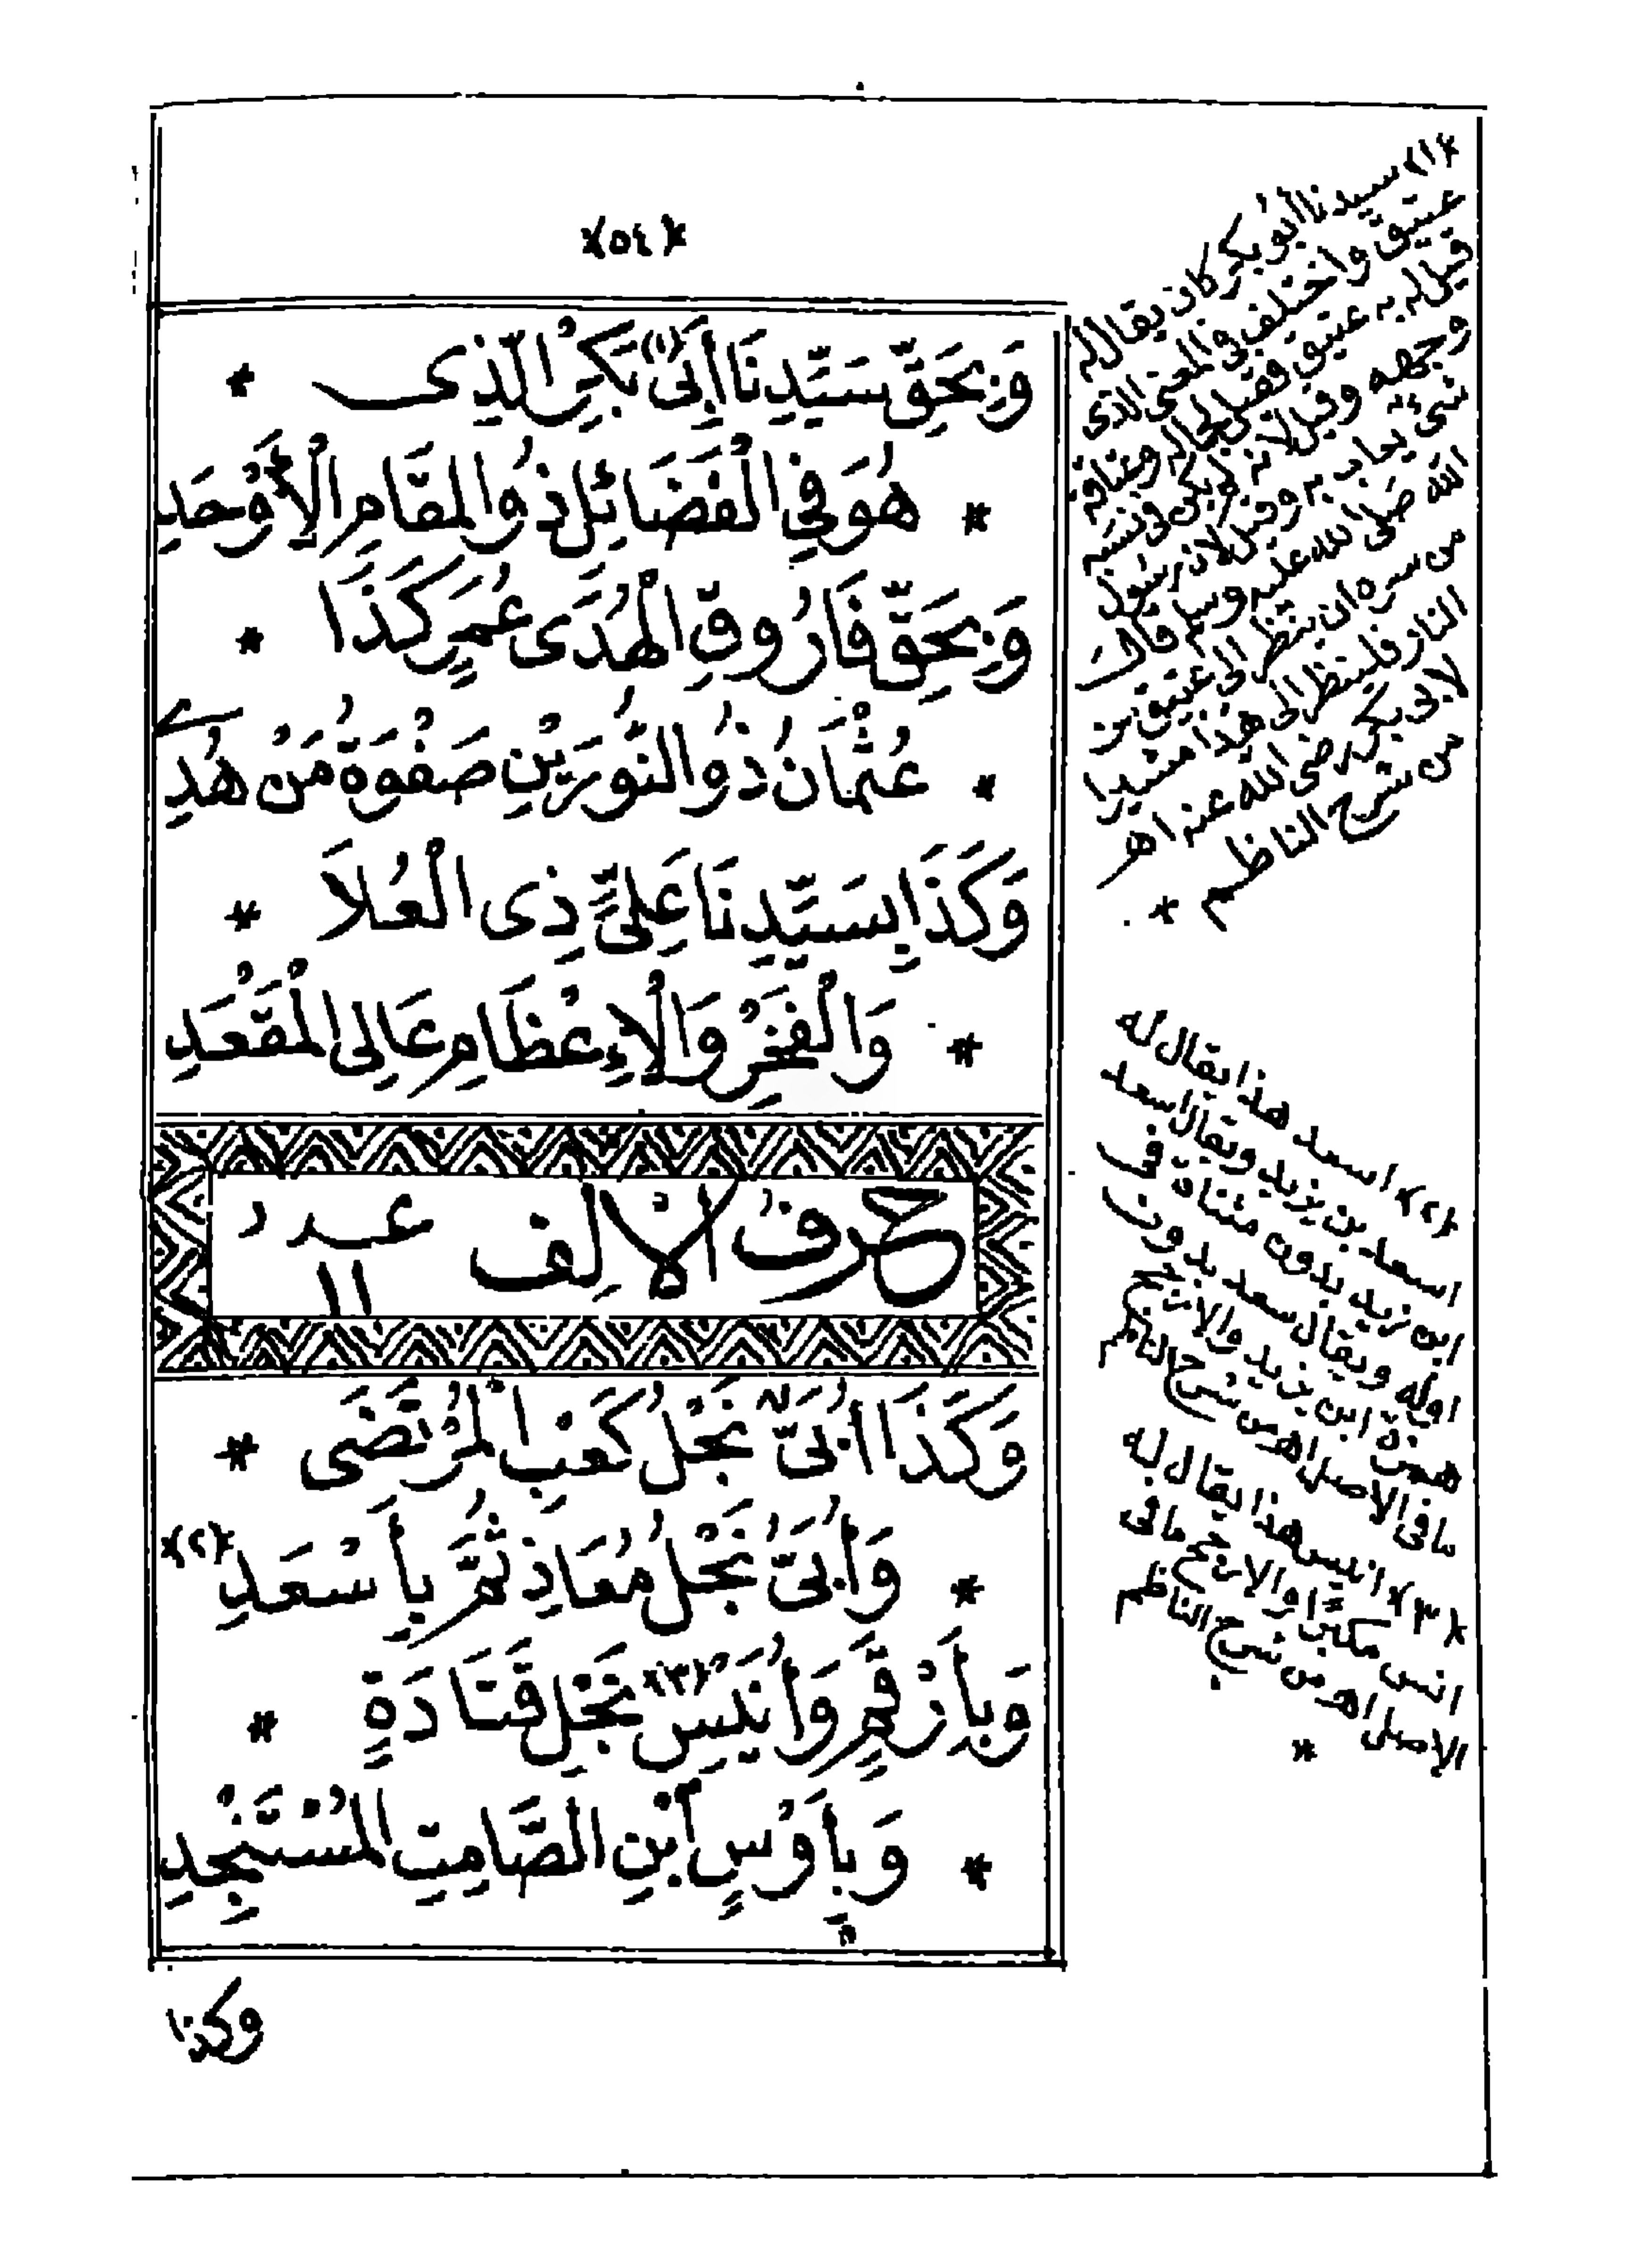 ﴿٥٤﴾
وَبِحَقِّ سَيِّدِنَا أَبِى (١) بَكْرِ الَّذِى *
* هُوَ فِى الْفَضَائِلِ ذُو الْمَقَامِ الْأَوْحَدِ
وَبِحَقِّ فَارُوقِ الْهُدَى عُمَرٍ كَذَا *
* عُثْمَانُ ذُو النُّورَيْنِ صَفْوَةُ مَنْ هُدِى
وَكَذَا بِسَيِّدِنَا عَلِىٍّ ذِى الْعُلَا *
* وَالْفَخْرِ وَالْإِعْظَامِ عَالِى الْمَقْعَدِ
حرف الالف عدد ١١
وَكَذَا اُبَىِّ نَجْلُ كَعْبِ الْمُرْتَضَى *
* وَاُبَىِّ نَجْلُ مُعَاذِ ثُمَّ بِأَسْعَدِ (٢)
وَبِأَرْقَمٍ وَاُنَيْسِ (٣) نَجْلِ قَتَادَةٍ *
* وَبِأَوْسٍ ابْنِ الصَّامِتِ الْمُسْتَنْجِدِ
وكذا
(١) سيدنا ابو بكر كان يقال له
عتيق واختلف فى المعنى الذى
قيل له به عتيق فقيل لجماله وعتاقة
وجهه وقيل لانه لم يكن فى نسبه
شئ يعاب به وقيل لان رسول
الله صلى الله عليه وسلم قال
من سره ان ينظر الى عتيق من
النار فلينظر الى هذا مشيرا
لابى بكر رضى الله عنه اهـ
من شرح الناظم *
(٢) اسعد هذا يقال له
اسعد بن يزيد ويقال اسعد
ابن زيد بدون مثناة فى
اوله ويقال سعد بدون
همزة ابن يزيد والارجح
ما فى الاصل اهـ من شرح الناظم
(٣) انيس هذا يقال له
انس مكبرا والارجح ما فى
الاصل اهـ من شرح الناظم
*